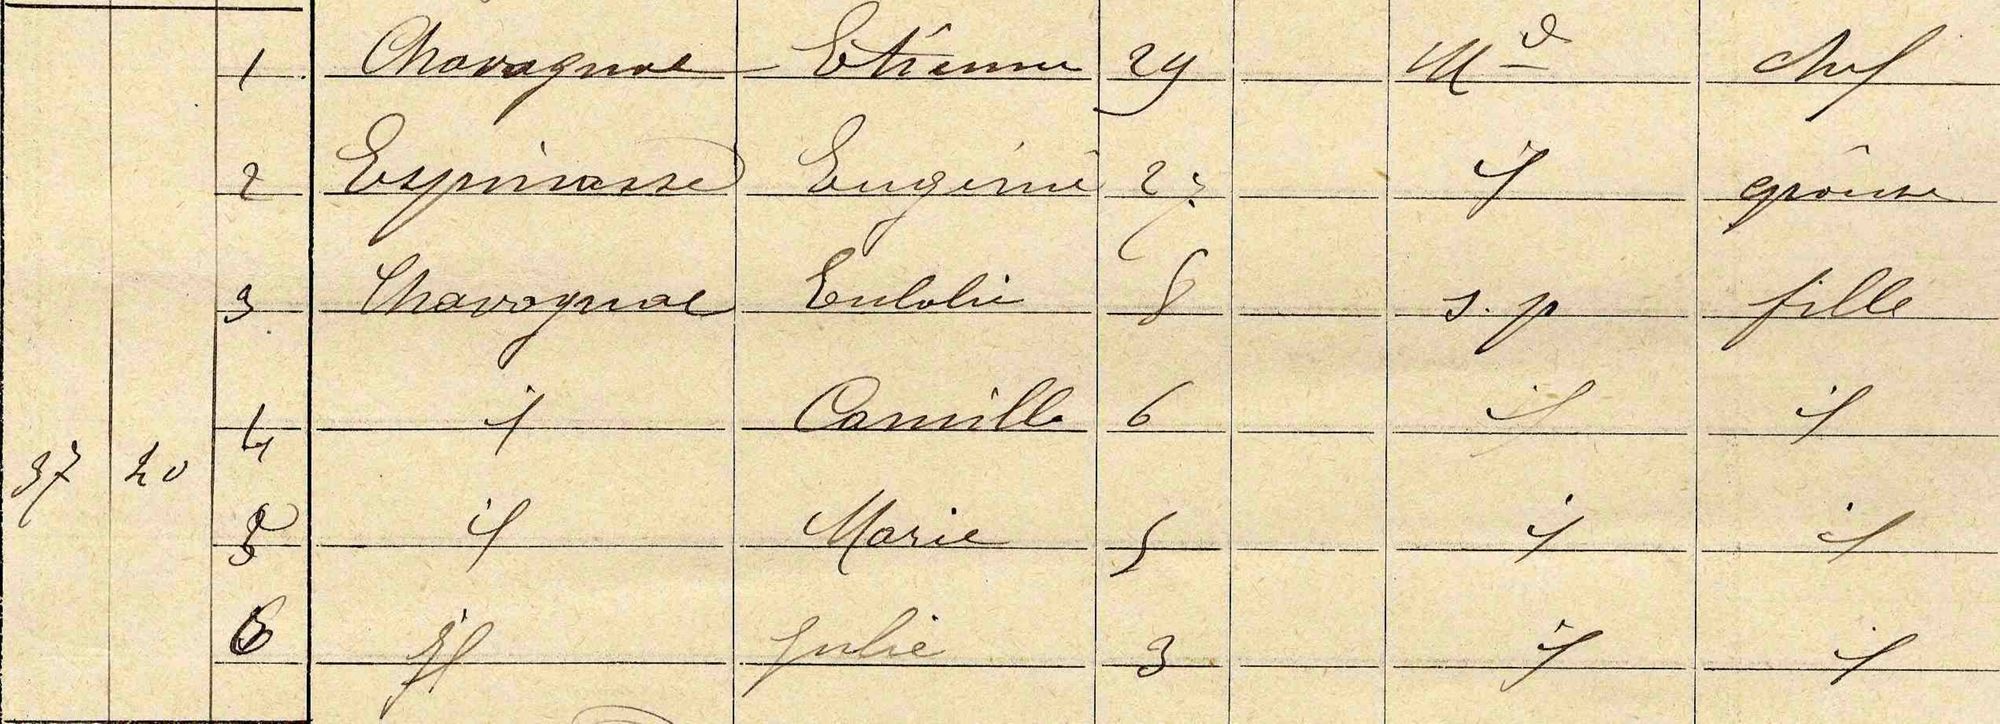 1 Chavagnac Etienne 29 Md chef
2 Espinasse Eugénie 27 id épouse
3 Chavagnac Eulalie 8 s.p fille
4 id Camille 6 id id
37 20
5 id Marie 5 id id
6 id Julie 3 id id